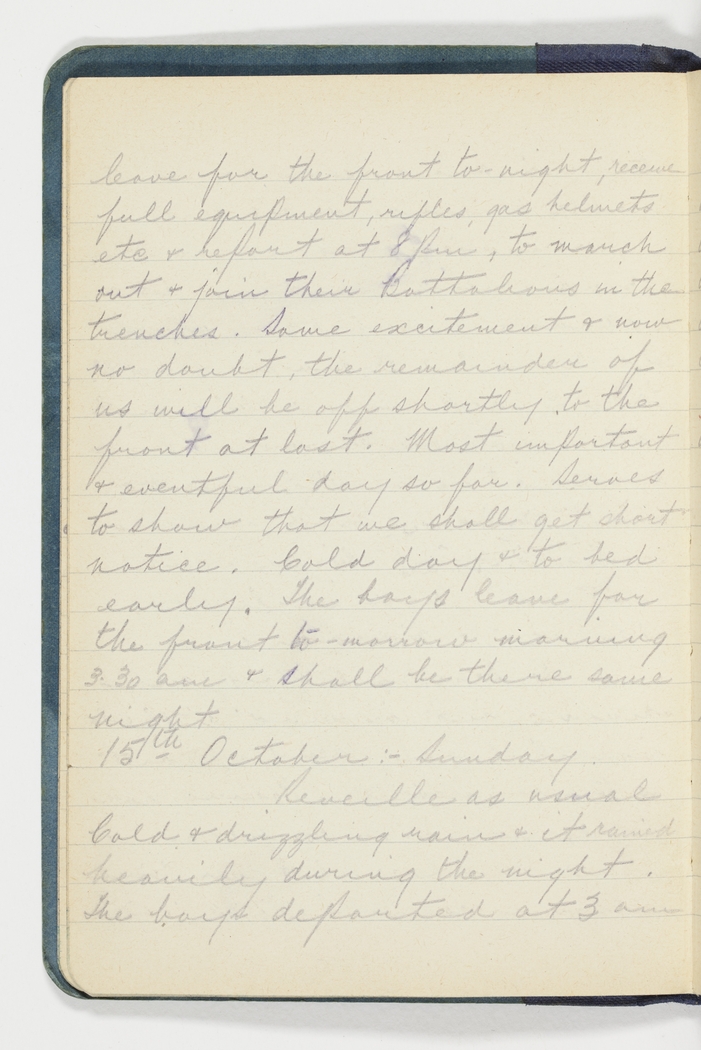 leave for the front to-night, receive
full equipment, rifles, gas helmets
etc & report at 8 pm, to march
out & join their Battalions in the
trenches. Some excitement & now
no doubt, the remainder of
us will be off shortly, to the
front at last. Most important
& eventful day so far. Serves
to show that we shall get short
notice. Cold day & to bed
early. The boys leave for
the front to-morrow morning
3.30 am & shall be there same
night
15th October :- Sunday.
Reveille as usual
Cold & drizzling rain & it rained
heavily during the night.
The boys departed at 3 am